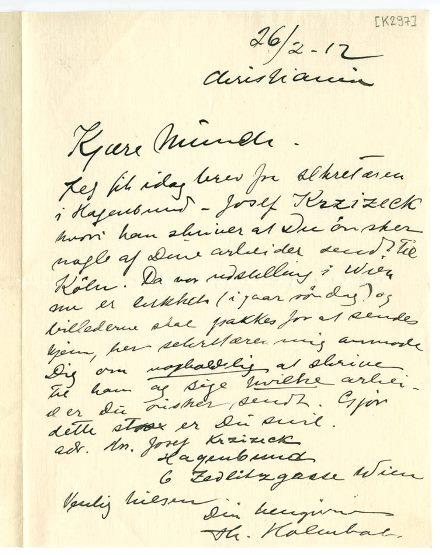 [K297]
26/2-12
Christiania
Kjære Munch.
Jeg fik idag brev fra sekretæren
i Hagenbund - Josef Krzizeck
hvori han skriver at Du ønsker
nogle af Dine arbeider sendt til
Köln. Da vor udstilling i Wien
nu er lukket (i gaar søndag) og
billederne skal pakkes for at sendes
hjem, ber sekretæren mig anmode
Dig om uopholdelig at skrive
til ham og sige hvilke arbei-
der Du ønsker sendt. Gjør
dette strax er Du snil.
adr. Hr. Josef Krzizeck
Hagenbund
6 Zedlitzgasse Wien
Venlig hilsen
Din hengivne
Th. Holmboe.